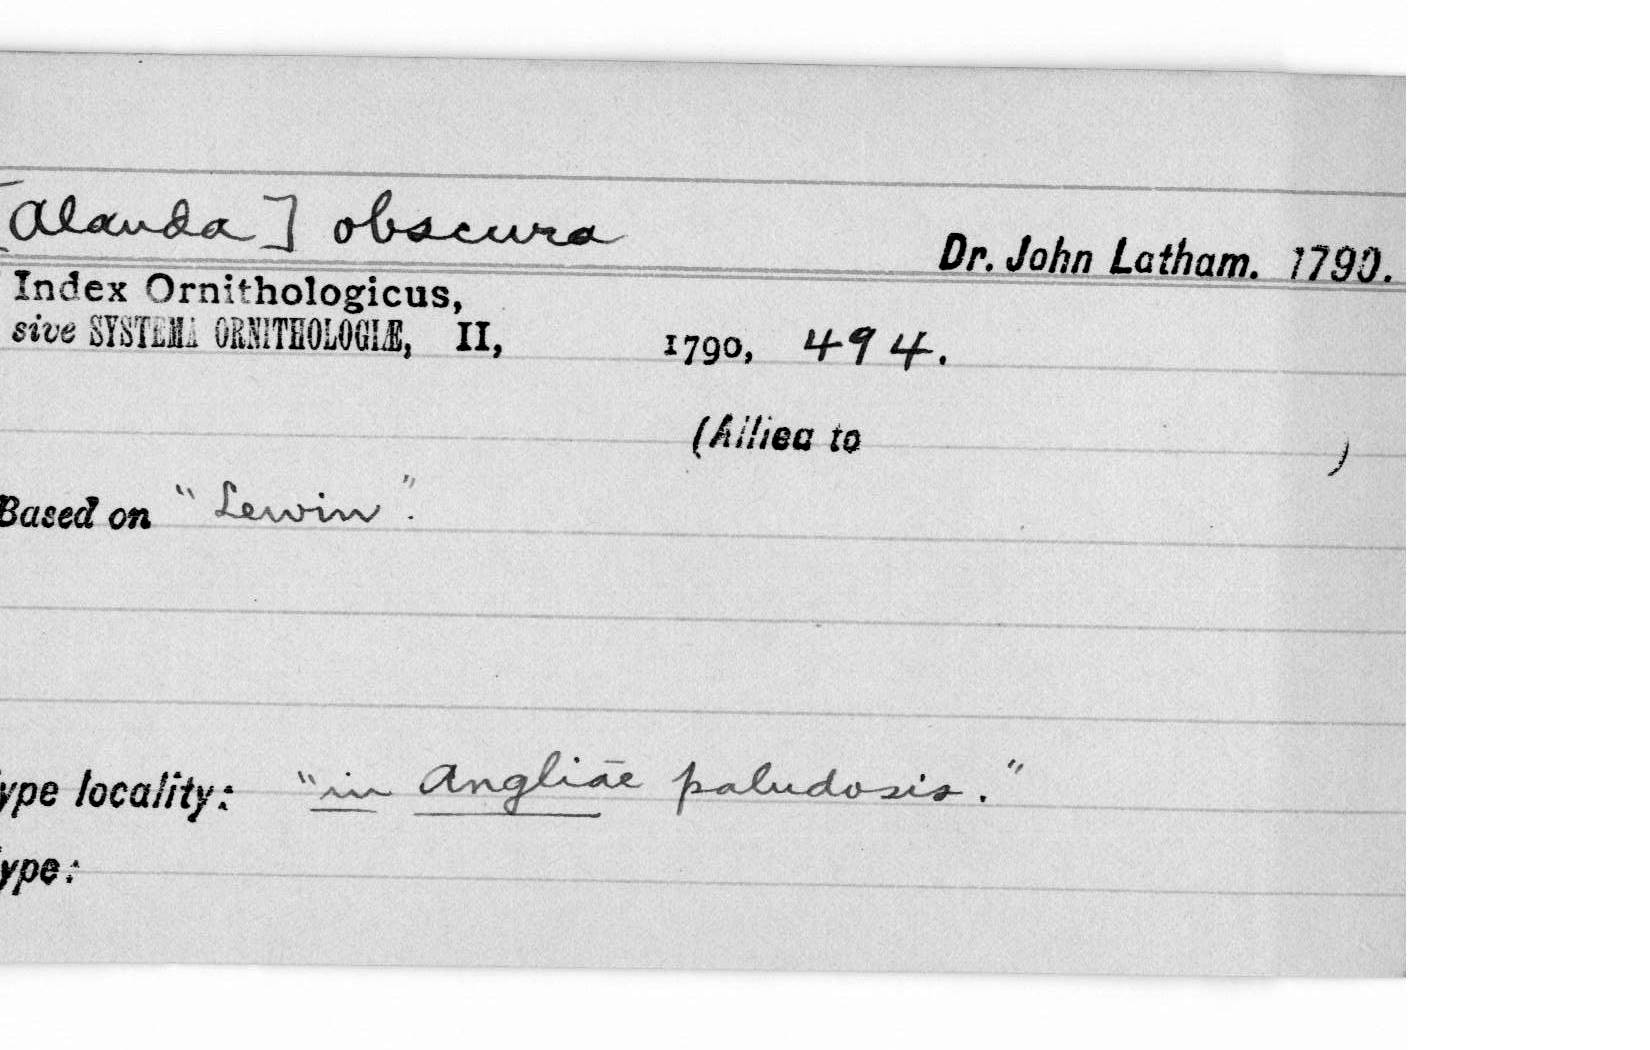 [Alauda] obscura
Dr. John Latham. 1790.
Index Ornithologicus,
sive SYSTEMA ORNITHOLOGIÆ, II, 1790, 494.
(Allied to )
Based on "Lewin".
ype locality: "in Angliae paludosis."
ype: